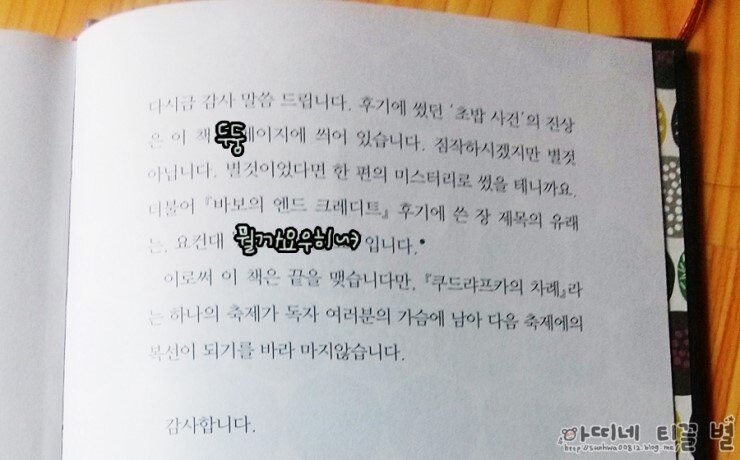 다시금 감사 말씀 드립니다. 후기에 썼던 '초밥 사건'의 진상
은 이 책 뚜둥 페이지에 씌어 있습니다. 짐작하시겠지만 별것
아닙니다. 별것이었다면 한 편의 미스터리로 썼을 테니까요.
더불어 『바보의 엔드 크레디트』 후기에 쓴 장 제목의 유래
는, 요컨대 뭘까요우히냐 입니다.*
이로써 이 책은 끝을 맺습니다만, 『쿠드랴프카의 차례』라
는 하나의 축제가 독자 여러분의 가슴에 남아 다음 축제에의
복선이 되기를 바라 마지않습니다.
감사합니다.
아띠네 티끌 별
http://sunhwa00812.blog.me/